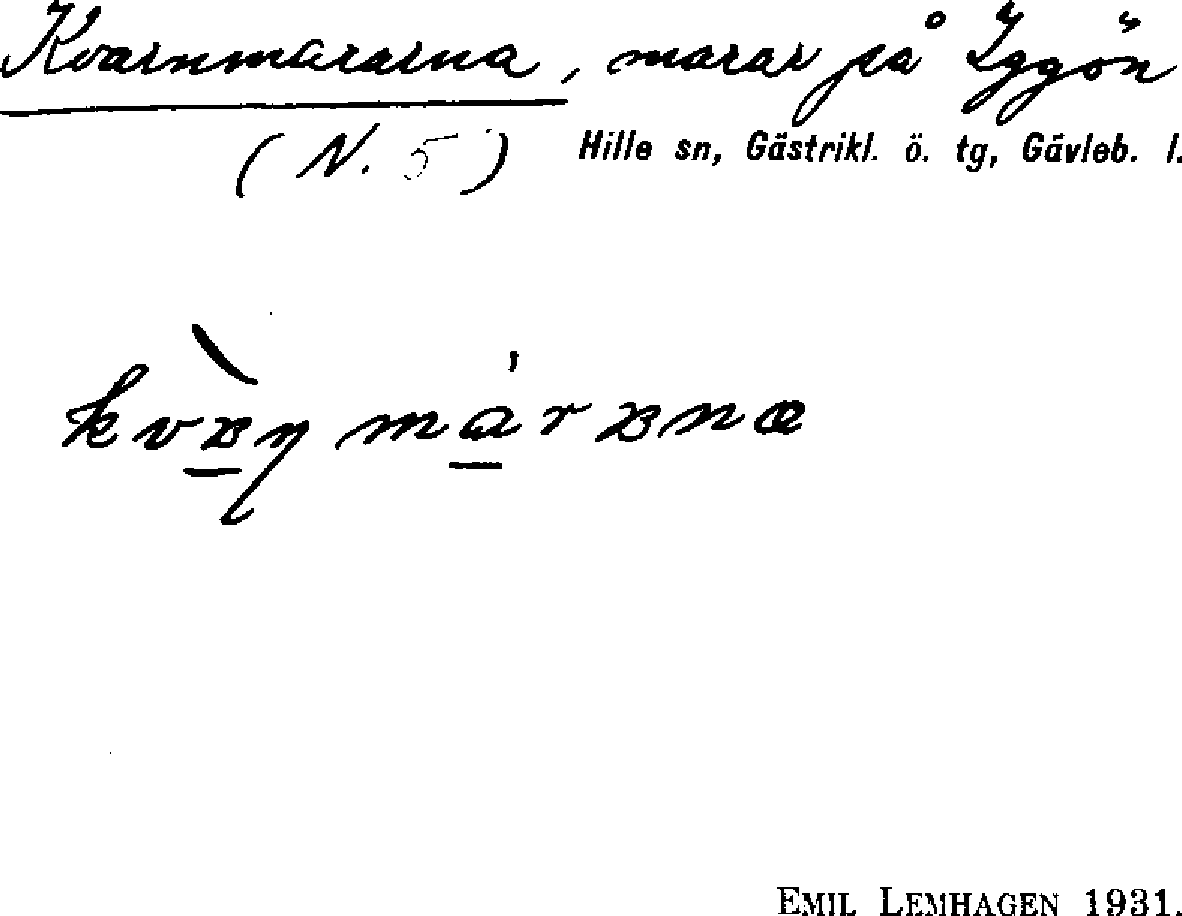 Kvarnmararna, marar på Iggön
(N. 5) Hille sn, Gästrikl. ö. tg, Gävleb. l.
EMIL LEMHAGEN 1931.